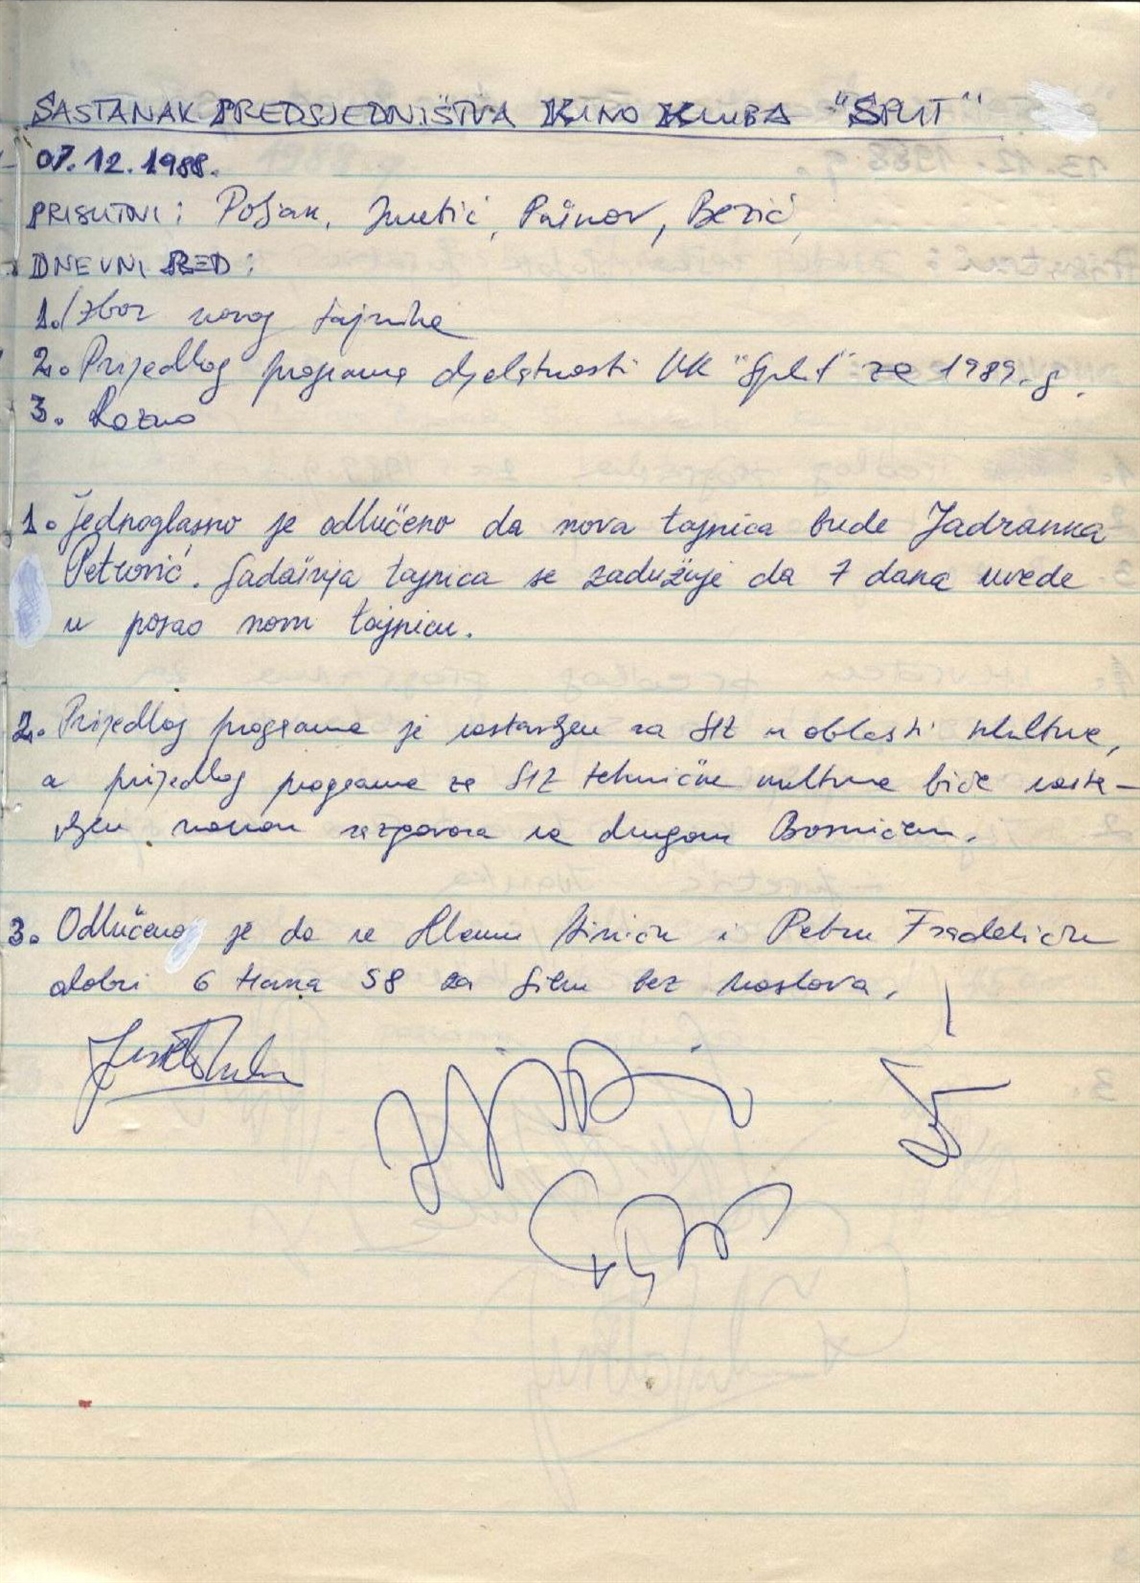 SASTANAK PREDSJEDNIŠTVA KINO KLUBA "SPLIT"
07.12.1988.
PRISUTNI: Poljak, Juretić, Pašnov, Bezić,
DNEVNI RED:
1. Izbor novog tajnika
2. Prijedlog programa djelatnosti KK "Split" za 1989. g.
3. Razno
1. Jednoglasno je odlučeno da nova tajnica bude Jadranka
Petrović. Sadašnja tajnica se zadužuje da 7 dana uvede
u posao novu tajnicu.
2. Prijedlog programa je sastavljen za SIZ u oblasti kulture,
a prijedlog programa za SIZ tehničke kulture biće sasta-
vljen nakon razgovora sa drugom Bosnićem.
3. Odlučeno je da se i Petru Fradeliću
odobri 6 S8 za film bez naslova.